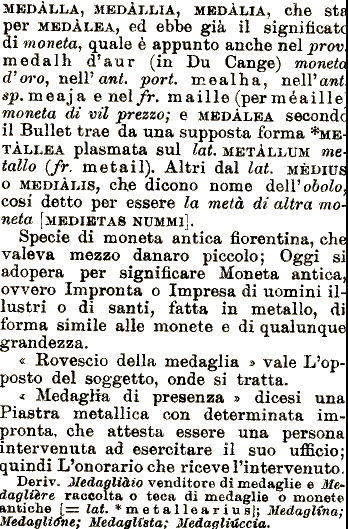 MEDÀLLA, MEDÀLLIA, MEDÀLIA, che sta
per MEDÀLEA, ed ebbe già il significato
di moneta, quale è appunto anche nel prov.
medalh d'aur (in Du Cange) moneta
d'oro, nell' ant. port. mealha, nell'ant.
sp. meaja e nel fr. maille (per méaille)
moneta di vil prezzo; e MEDÀLEA secondo
il Bullet trae da una supposta forma *ME-
TÀLLEA plasmata sul lat. METÀLLUM me-
tallo (fr. metail). Altri dal lat. MÈDIUS
o MEDIÀLIS, che dicono nome dell'obolo,
cosí detto per essere la metà di altra mo-
neta [MEDIETAS NUMMI].
Specie di moneta antica fiorentina, che
valeva mezzo danaro piccolo; Oggi si
adopera per significare Moneta antica,
ovvero Impronta o Impresa di uomini il-
lustri o di santi, fatta in metallo, di
forma simile alle monete e di qualunque
grandezza.
« Rovescio della medaglia » vale L'op-
posto del soggetto, onde si tratta.
« Medaglia di presenza » dicesi una
Piastra metallica con determinata im-
pronta, che attesta essere una persona
intervenuta ad esercitare il suo ufficio;
quindi L'onorario che riceve l'intervenuto.
Deriv. Medagliàio venditore di medaglie e Me-
daglière raccolta o teca di medaglie o monete
antiche [= lat. *metallearius]; Medaglína;
Medaglióne; Medaglísta; Medagliúccia.